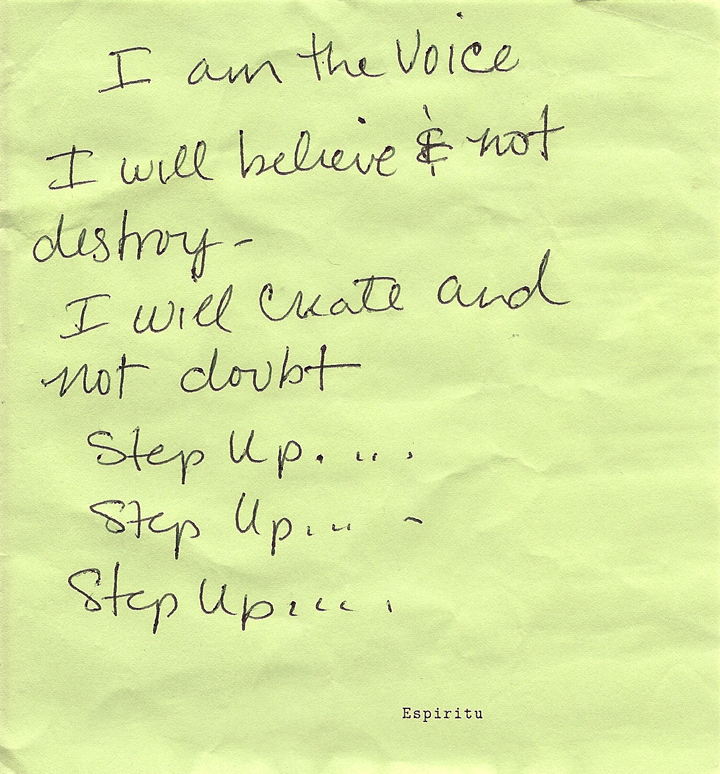 I am the Voice
I will believe & not
destroy -
I will Create and
not doubt
Step Up. ...
Step Up... -
Step Up.... .
Espiritu